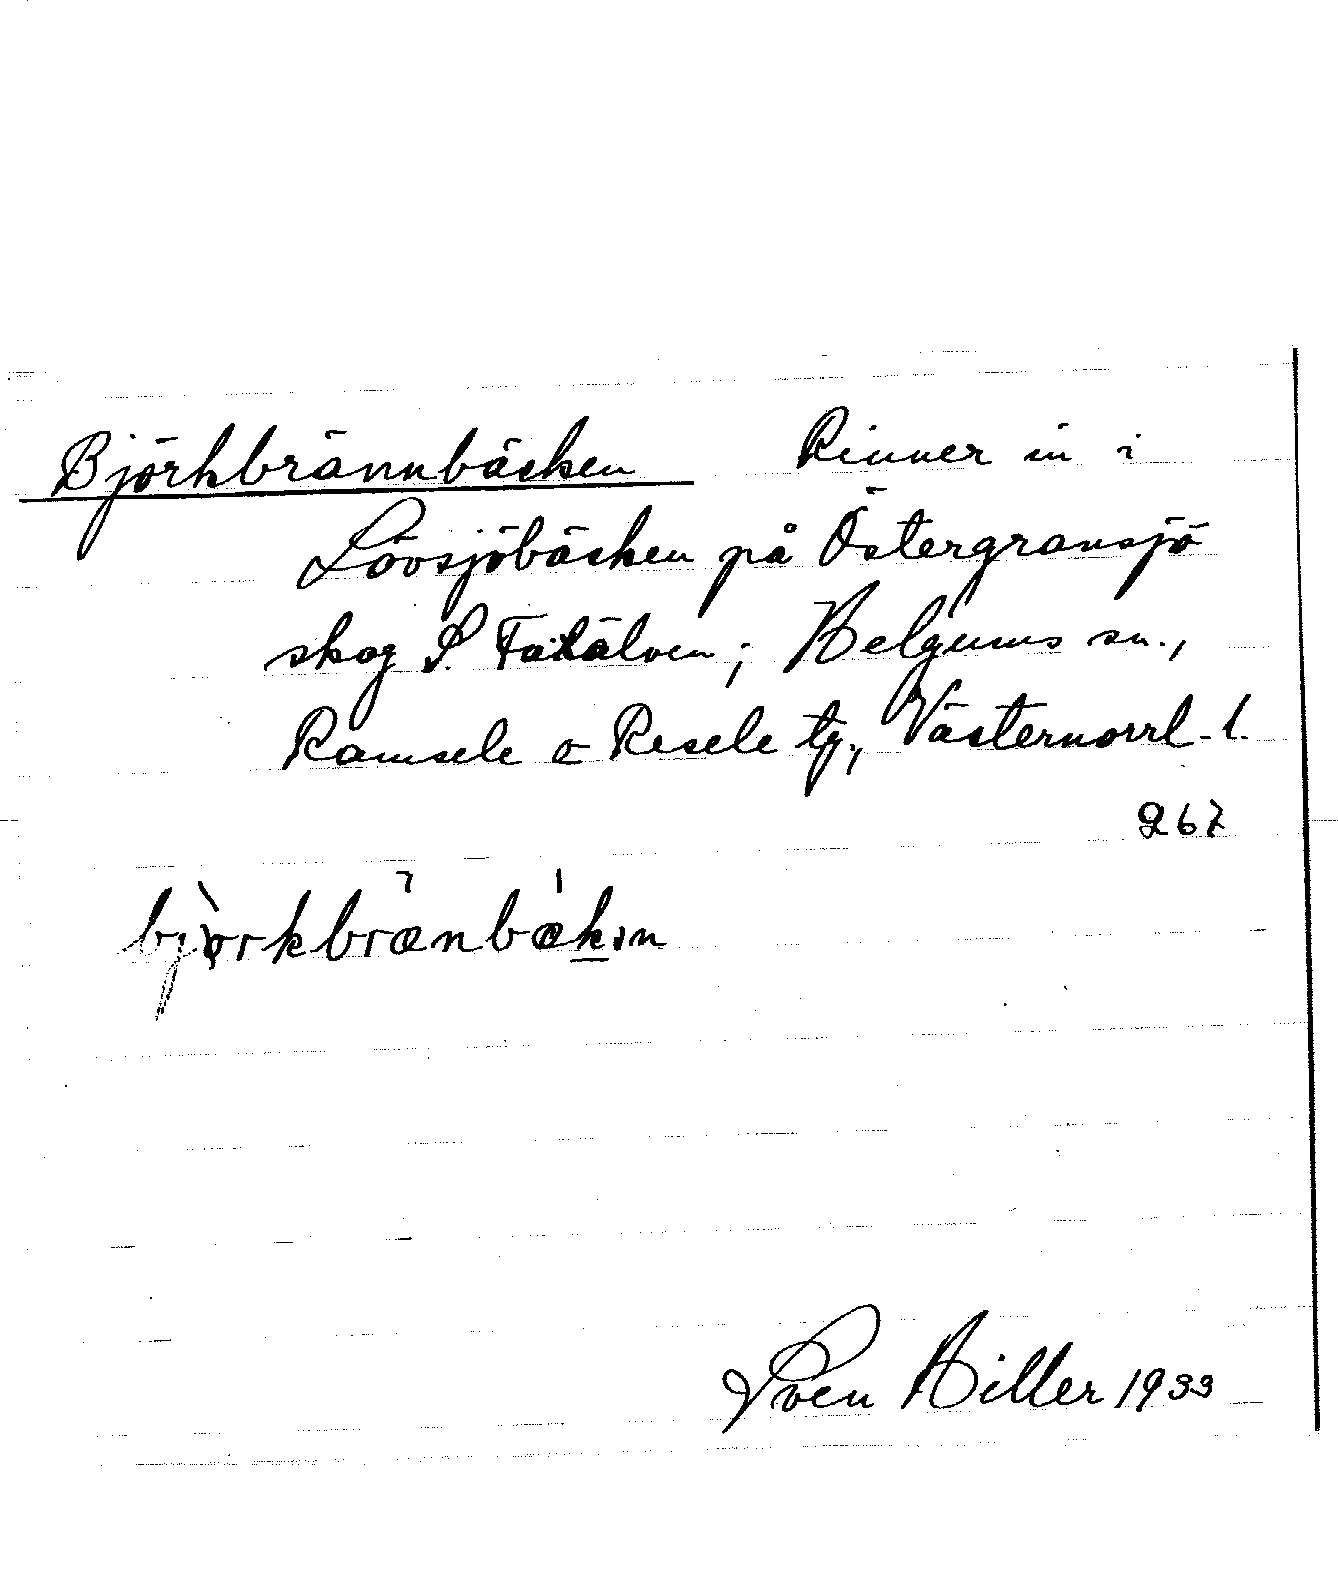 Björkbrännbäcken Rinner in i
Lövsjöbäcken på Östergransjö
skog S. Faxälven; Helgums sn.,
Ramsele o Resele tg., Västernorrl. l.
267
bjòrkbrænbækın
Sven Hiller 1933